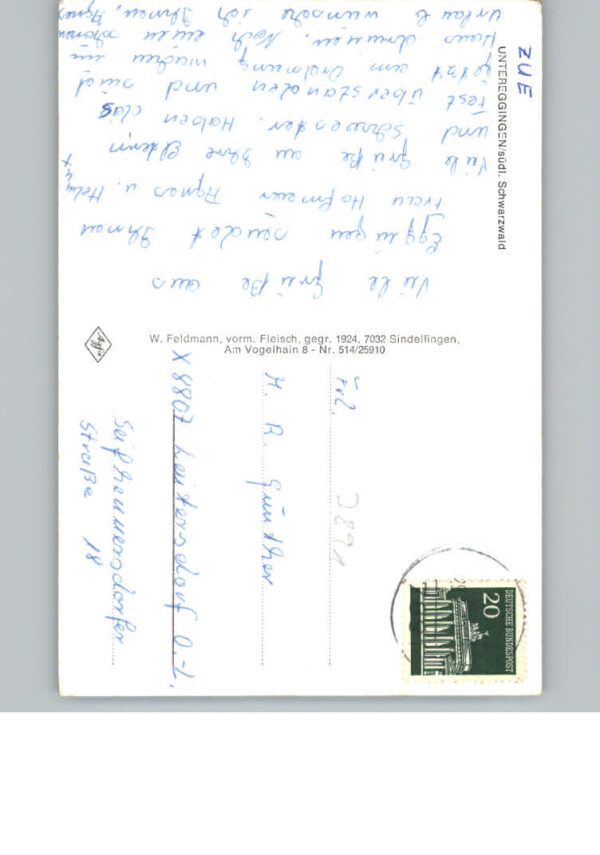 ZUE
UNTEREGGINGEN/südl. Schwarzwald
Viele Grüße aus
Eggingen sendet Ihnen
Frau Hofmeier Agnes u. Helm
Viele Grüße an Ihre Eltern
und Schwester. Haben das
Fest überstanden und sind
jetzt am Ordnung machen im
Haus drinnen. Noch einen schönen
Urlaub wünsche ich Ihnen, Agnes
W. Feldmann, vorm. Fleisch, gegr. 1924, 7032 Sindelfingen,
Am Vogelhain 8 - Nr. 514/25910
Agfa
Frl.
M. R. Günther
X 8807 Leutersdorf O.-L.
Seifhennersdorfer
Straße 18
DEUTSCHE BUNDESPOST
20